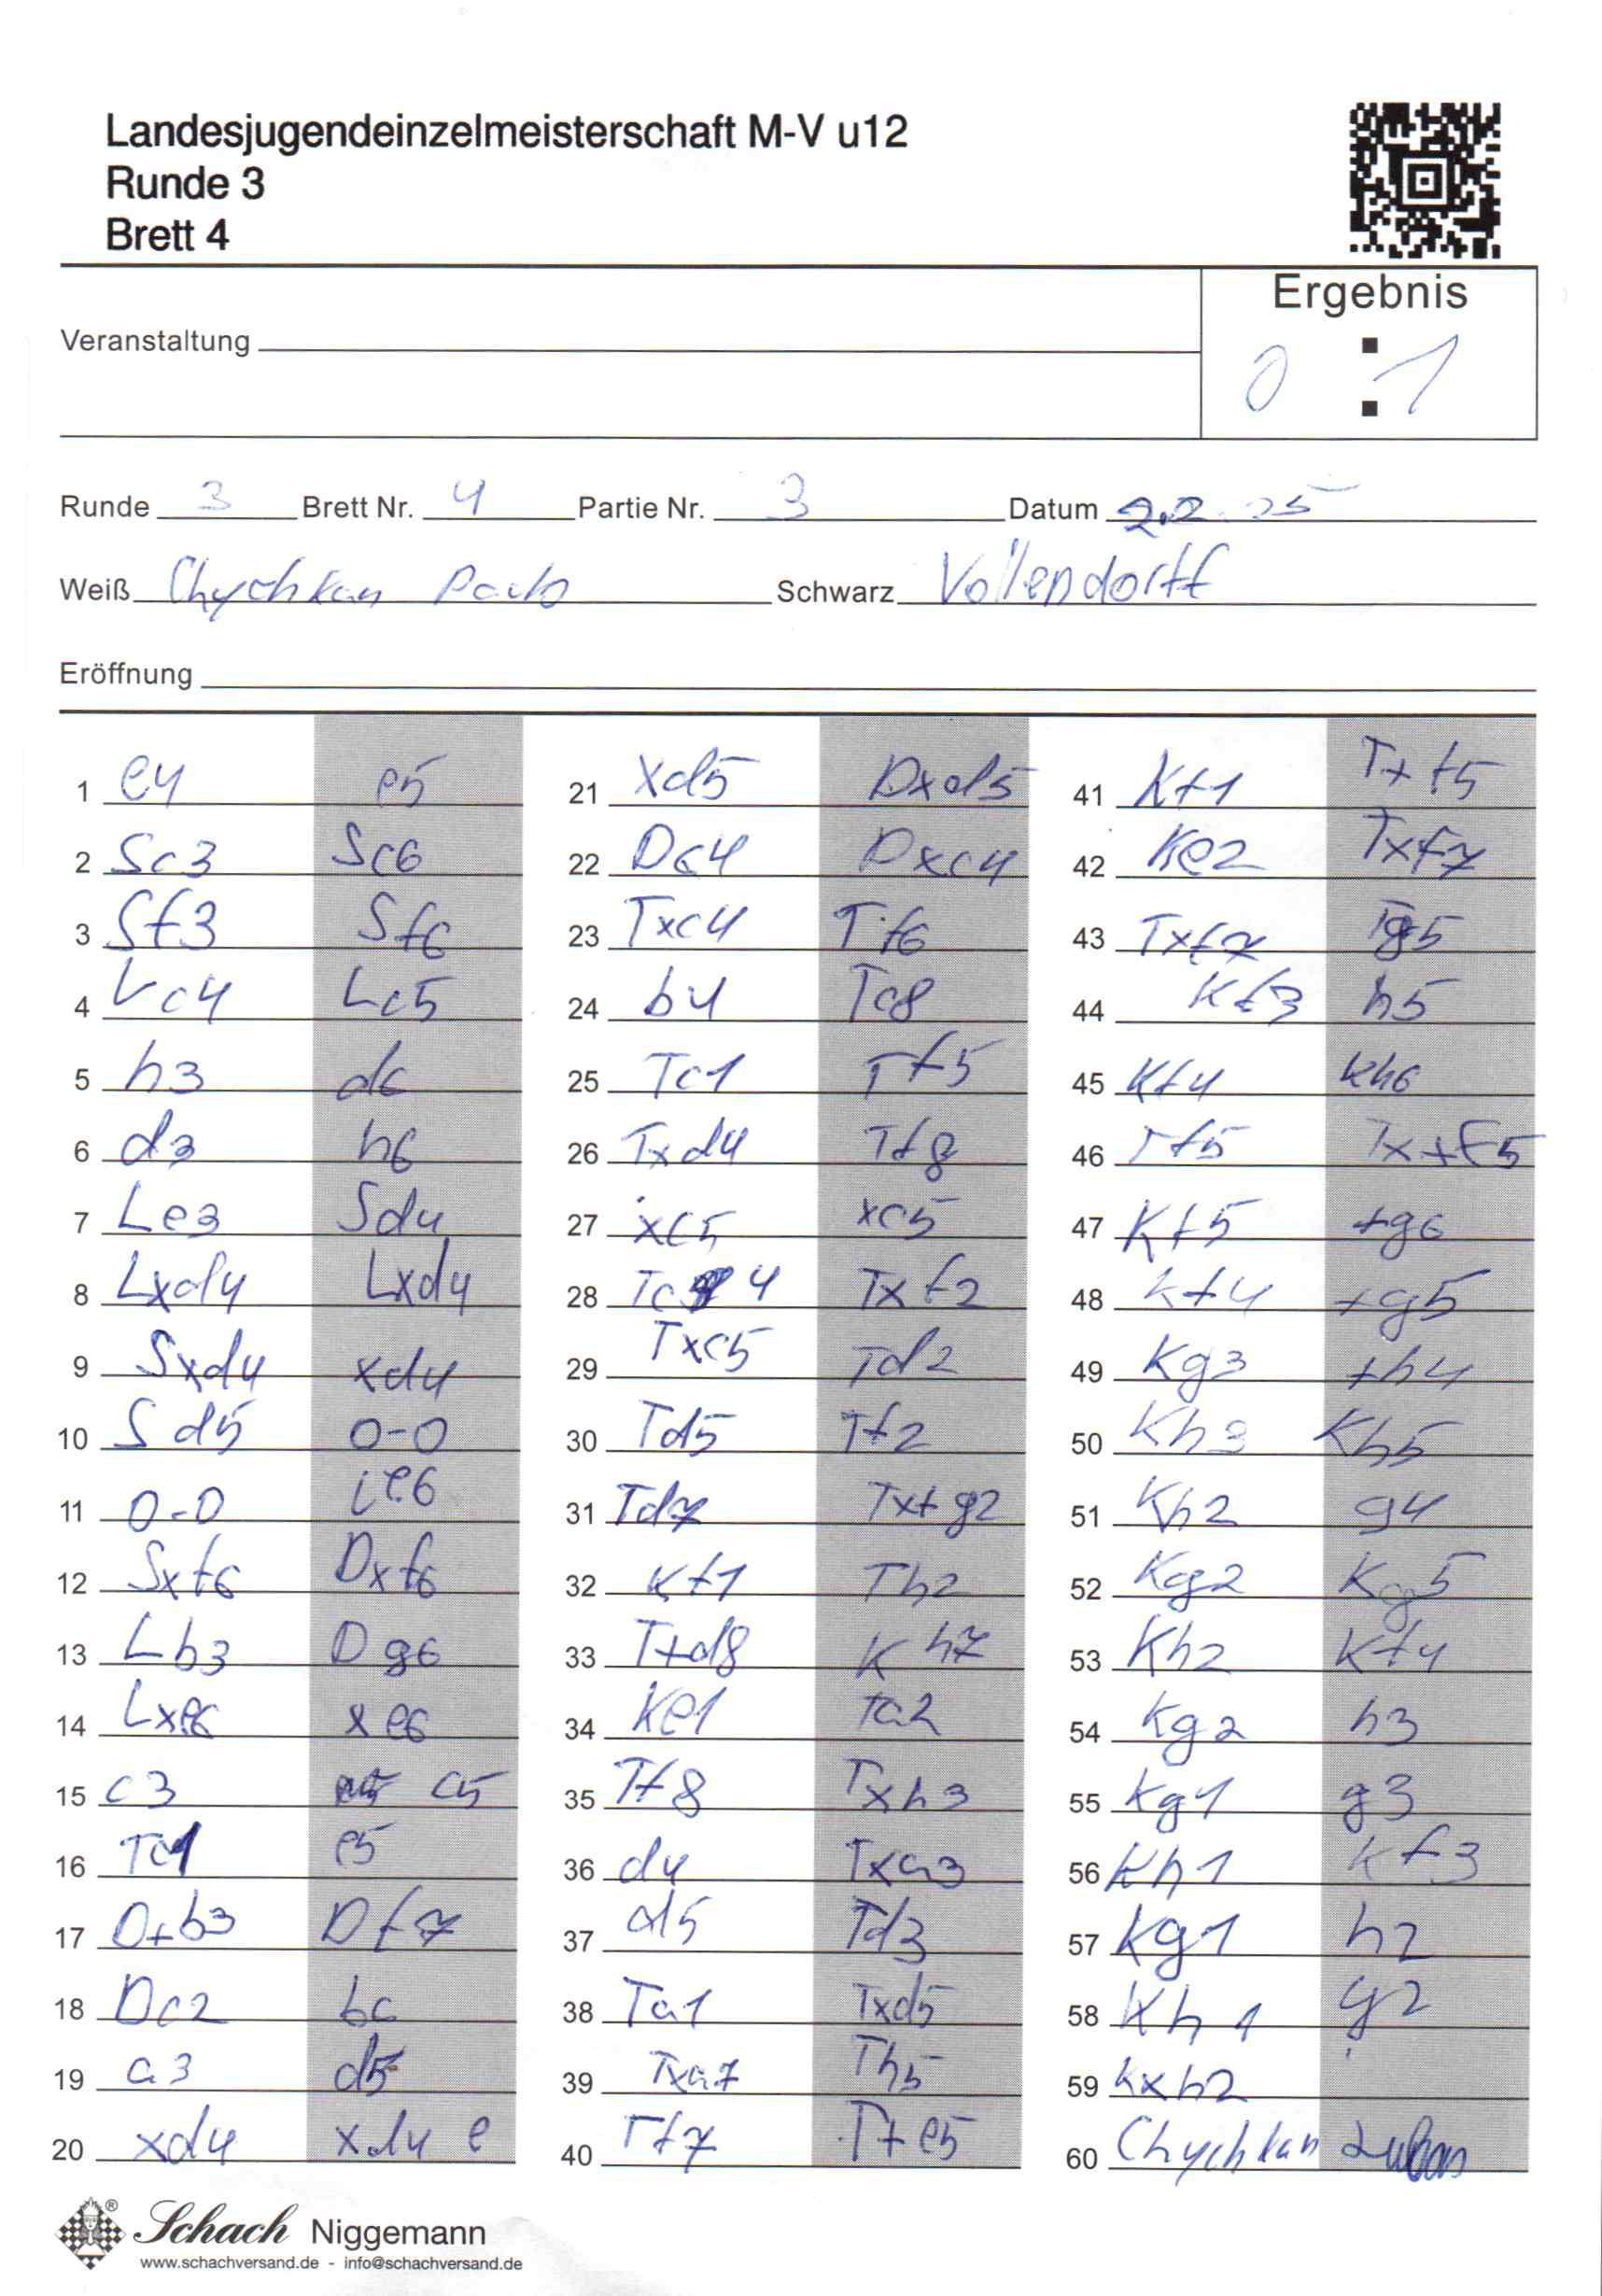 Landesjugendeinzelmeisterschaft M-V u12
Runde 3
Brett 4
Ergebnis
0 : 1
Veranstaltung
Runde 3 Brett Nr. 4 Partie Nr. 3 Datum 2.2.25
Weiß Chychkan Schwarz Vollendorff
Eröffnung
1 e4 e5
2 Sc3 Sc6
3 Sf3 Sf6
4 Lc4 Lc5
5 h3 d6
6 d3 h6
7 Le3 Sd4
8 Lxd4 Lxd4
9 Sxd4 xd4
10 Sd5 0-0
11 0-0 Le6
12 Sxf6 Dxf6
13 Lb3 Dg6
14 Lxe6 xe6
15 c3 c5
16 Tc1 e5
17 D+b3 Df7
18 Dc2 b6
19 a3 d5
20 xd4 xd4 e
21 xd5 Dxd5
22 Dc4 Dxc4
23 Txc4 Tf6
24 b4 Tc8
25 Tc1 Tf5
26 Txd4 Tf8
27 xc5 xc5
28 Tc4 Txf2
29 Txc5 Td2
30 Td5 Tf2
31 Td7 Tx+g2
32 Kf1 Th2
33 T+d8 Kh7
34 Ke1 Ta2
35 Tf8 Txh3
36 d4 Txa3
37 d5 Td3
38 Ta1 Txd5
39 Txa7 Th5
40 Tf7 T+e5
41 Kf1 Tx f5
42 Ke2 Txf7
43 Txf7 Tg5
44 Kf3 h5
45 Kf4 Kh6
46 Tf5 Tx+f5
47 Kf5 +g6
48 Kf4 +g5
49 Kg3 +h4
50 Kh3 Kh5
51 Kh2 g4
52 Kg2 Kg5
53 Kh2 Kf4
54 Kg2 h3
55 Kg1 g3
56 Kh1 Kf3
57 Kg1 h2
58 Kh1 g2
59 Kxh2
60 Chychkan
Schach Niggemann
www.schachversand.de - info@schachversand.de